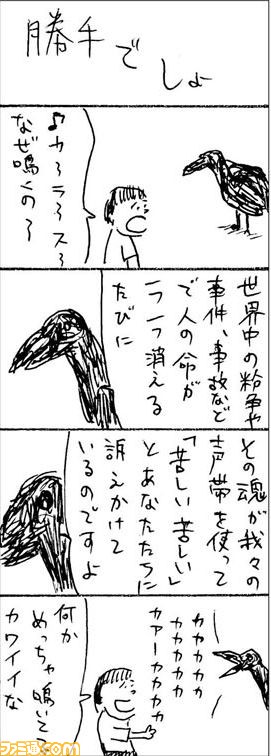 勝手でしょ
♪カ〜ラ〜ス〜
なぜ鳴くの〜
世界中の紛争や
事件、事故など
で人の命が
一つ一つ消える
たびに
その魂が我々の
声帯を使って
「苦しい苦しい」
とあなたたちに
訴えかけて
いるのですよ
カカカカカ
カカカカカ
カァーカカカカ
何か
めっちゃ鳴いてる
カワイイな
ファミ通.com